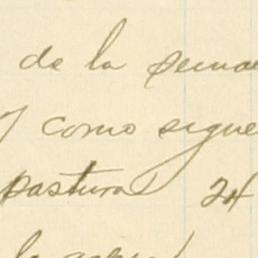 de la
y como sigue
pastura 24
la